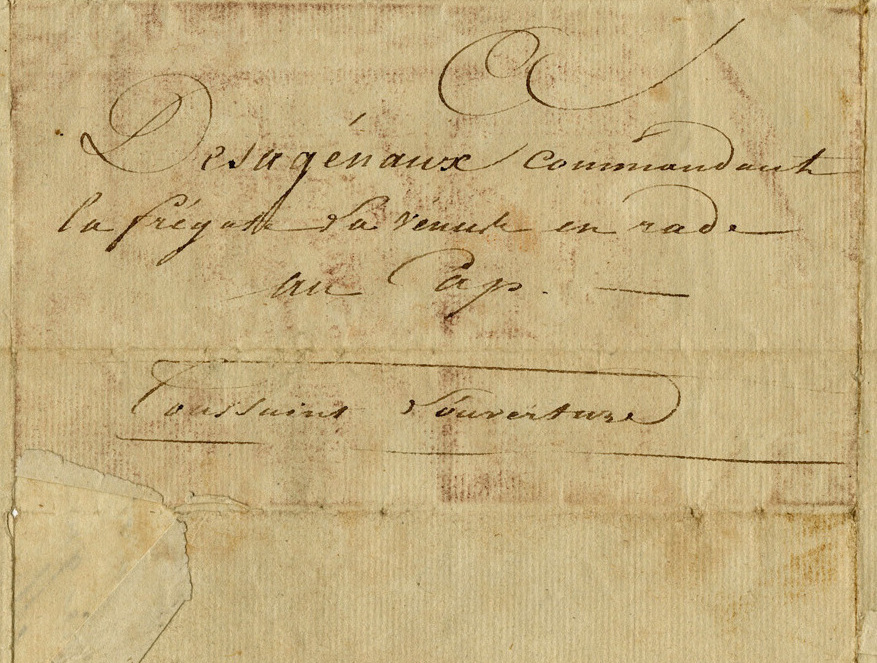 A
Desagénaux commandant
la frégate La venus en rade
au Cap. —
Toussaint Louverture